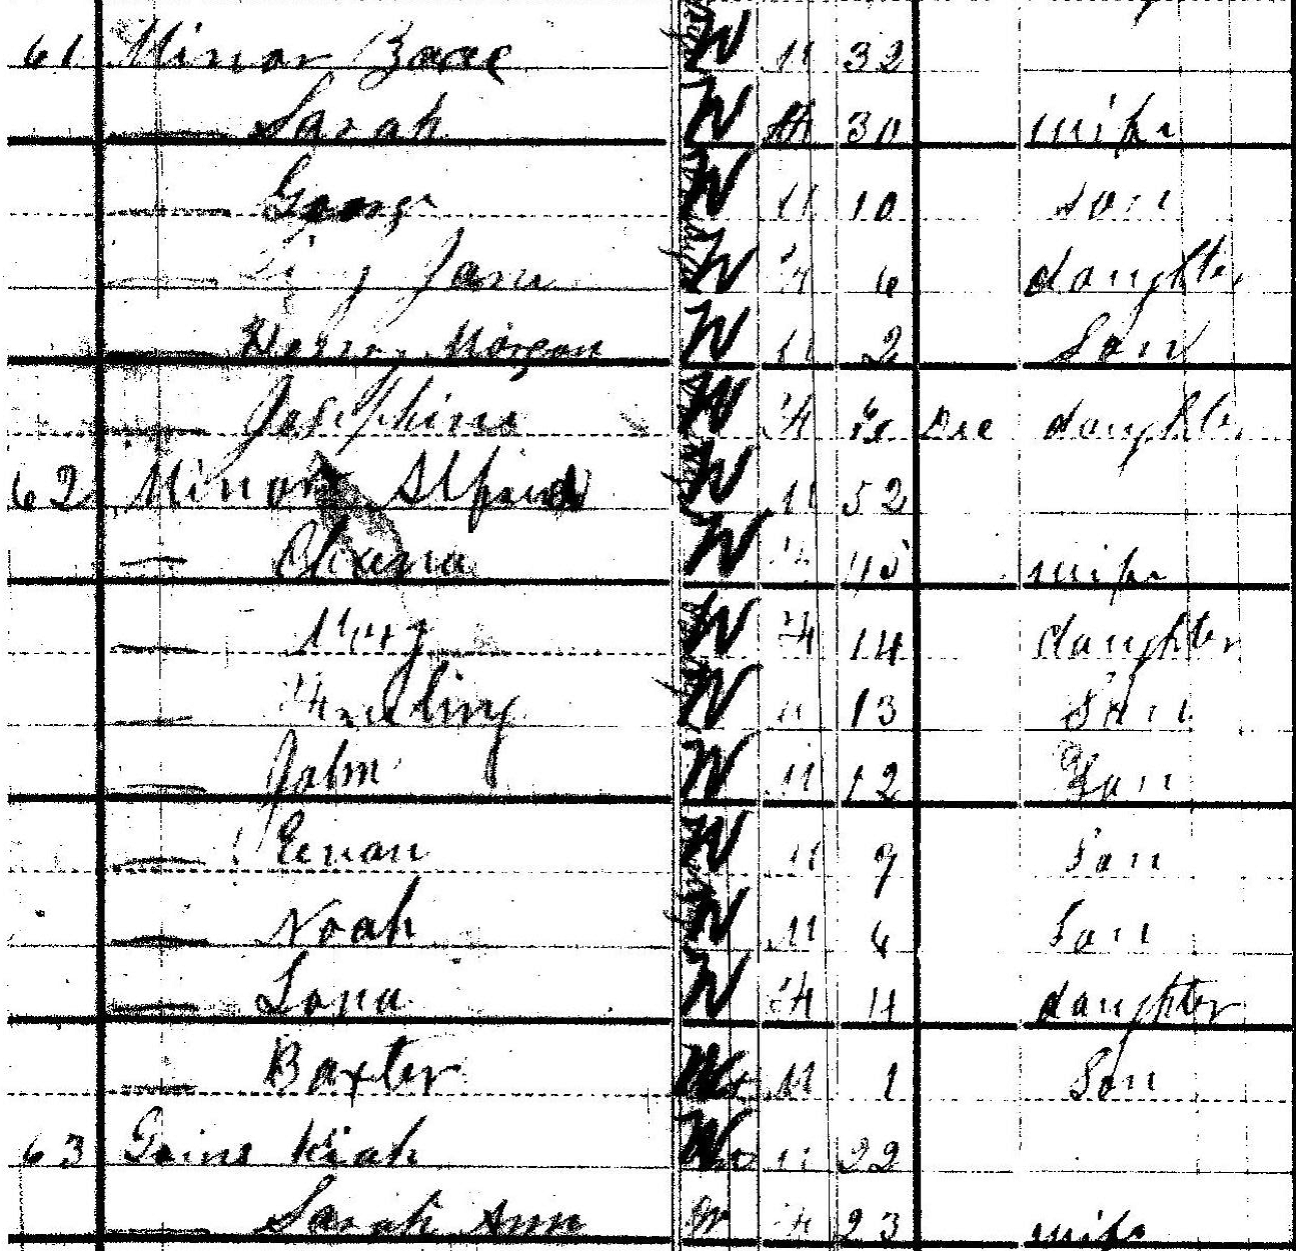 61 Minor Isaac W M 32
— Sarah W 30 wife
— George W M 10 son
— Jane W F 6 daughter
— Henry Morgan W M 2 Son
— Josephine W F Dec daughter
62 Minor Alfred W M 52
— W F 45 wife
— Mary W F 14 daughter
— W M 13 Son
— John W M 12 Son
— W M 9 Son
— Noah W M 6 Son
— W F 4 daughter
— Baxter W M 1 Son
63 Goins Kiah W M 22
— Sarah Ann W F 23 wife